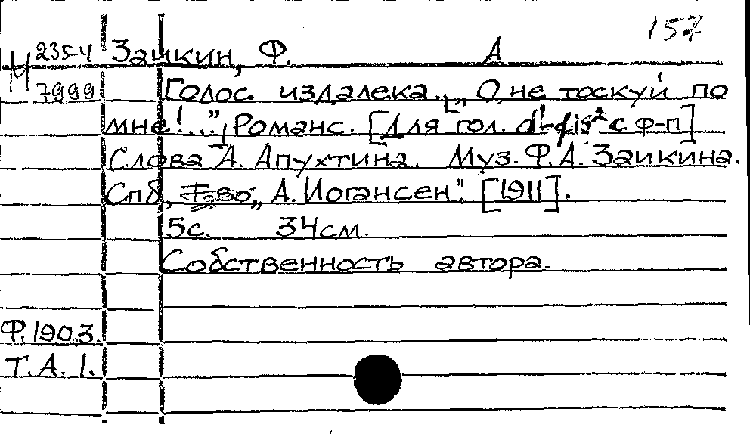 157
М 235-4 Заикин, Ф. А
7999 Голос издалека. [„О, не тоскуй по
мне!..."] Романс. [Для гол. d¹-fis² с ф-п]
Слова А. Апухтина. Муз. Ф. А. Заикина.
Спб, „А. Иогансен". [1911].
5с. 34см.
Собственность автора.
Ф.1903.
Т.А.1.